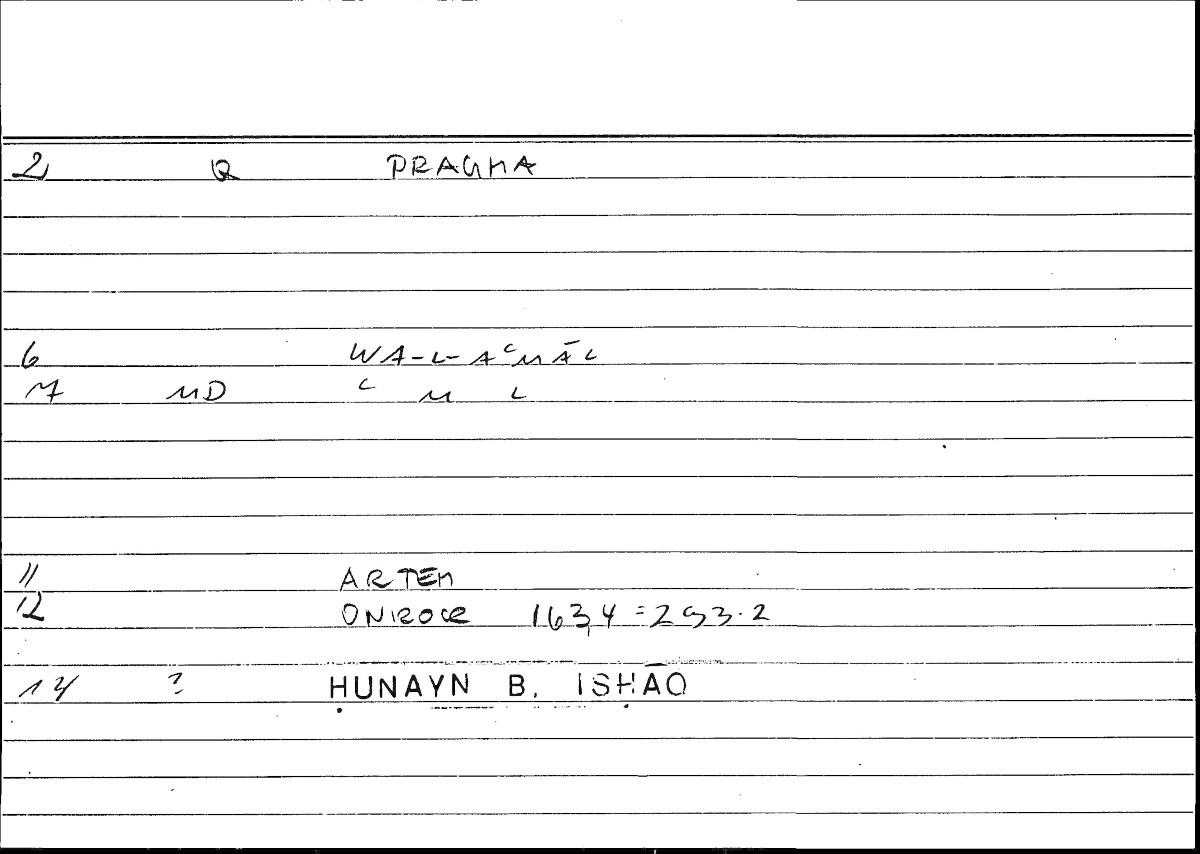 2 Q PRAGMA
6 WA-L-AʿMĀL
7 MD ʿ M L
11 ARTEM
12 ONIROCR 163,4 = 293.2
14 ? ḤUNAYN B. ISḤĀQ